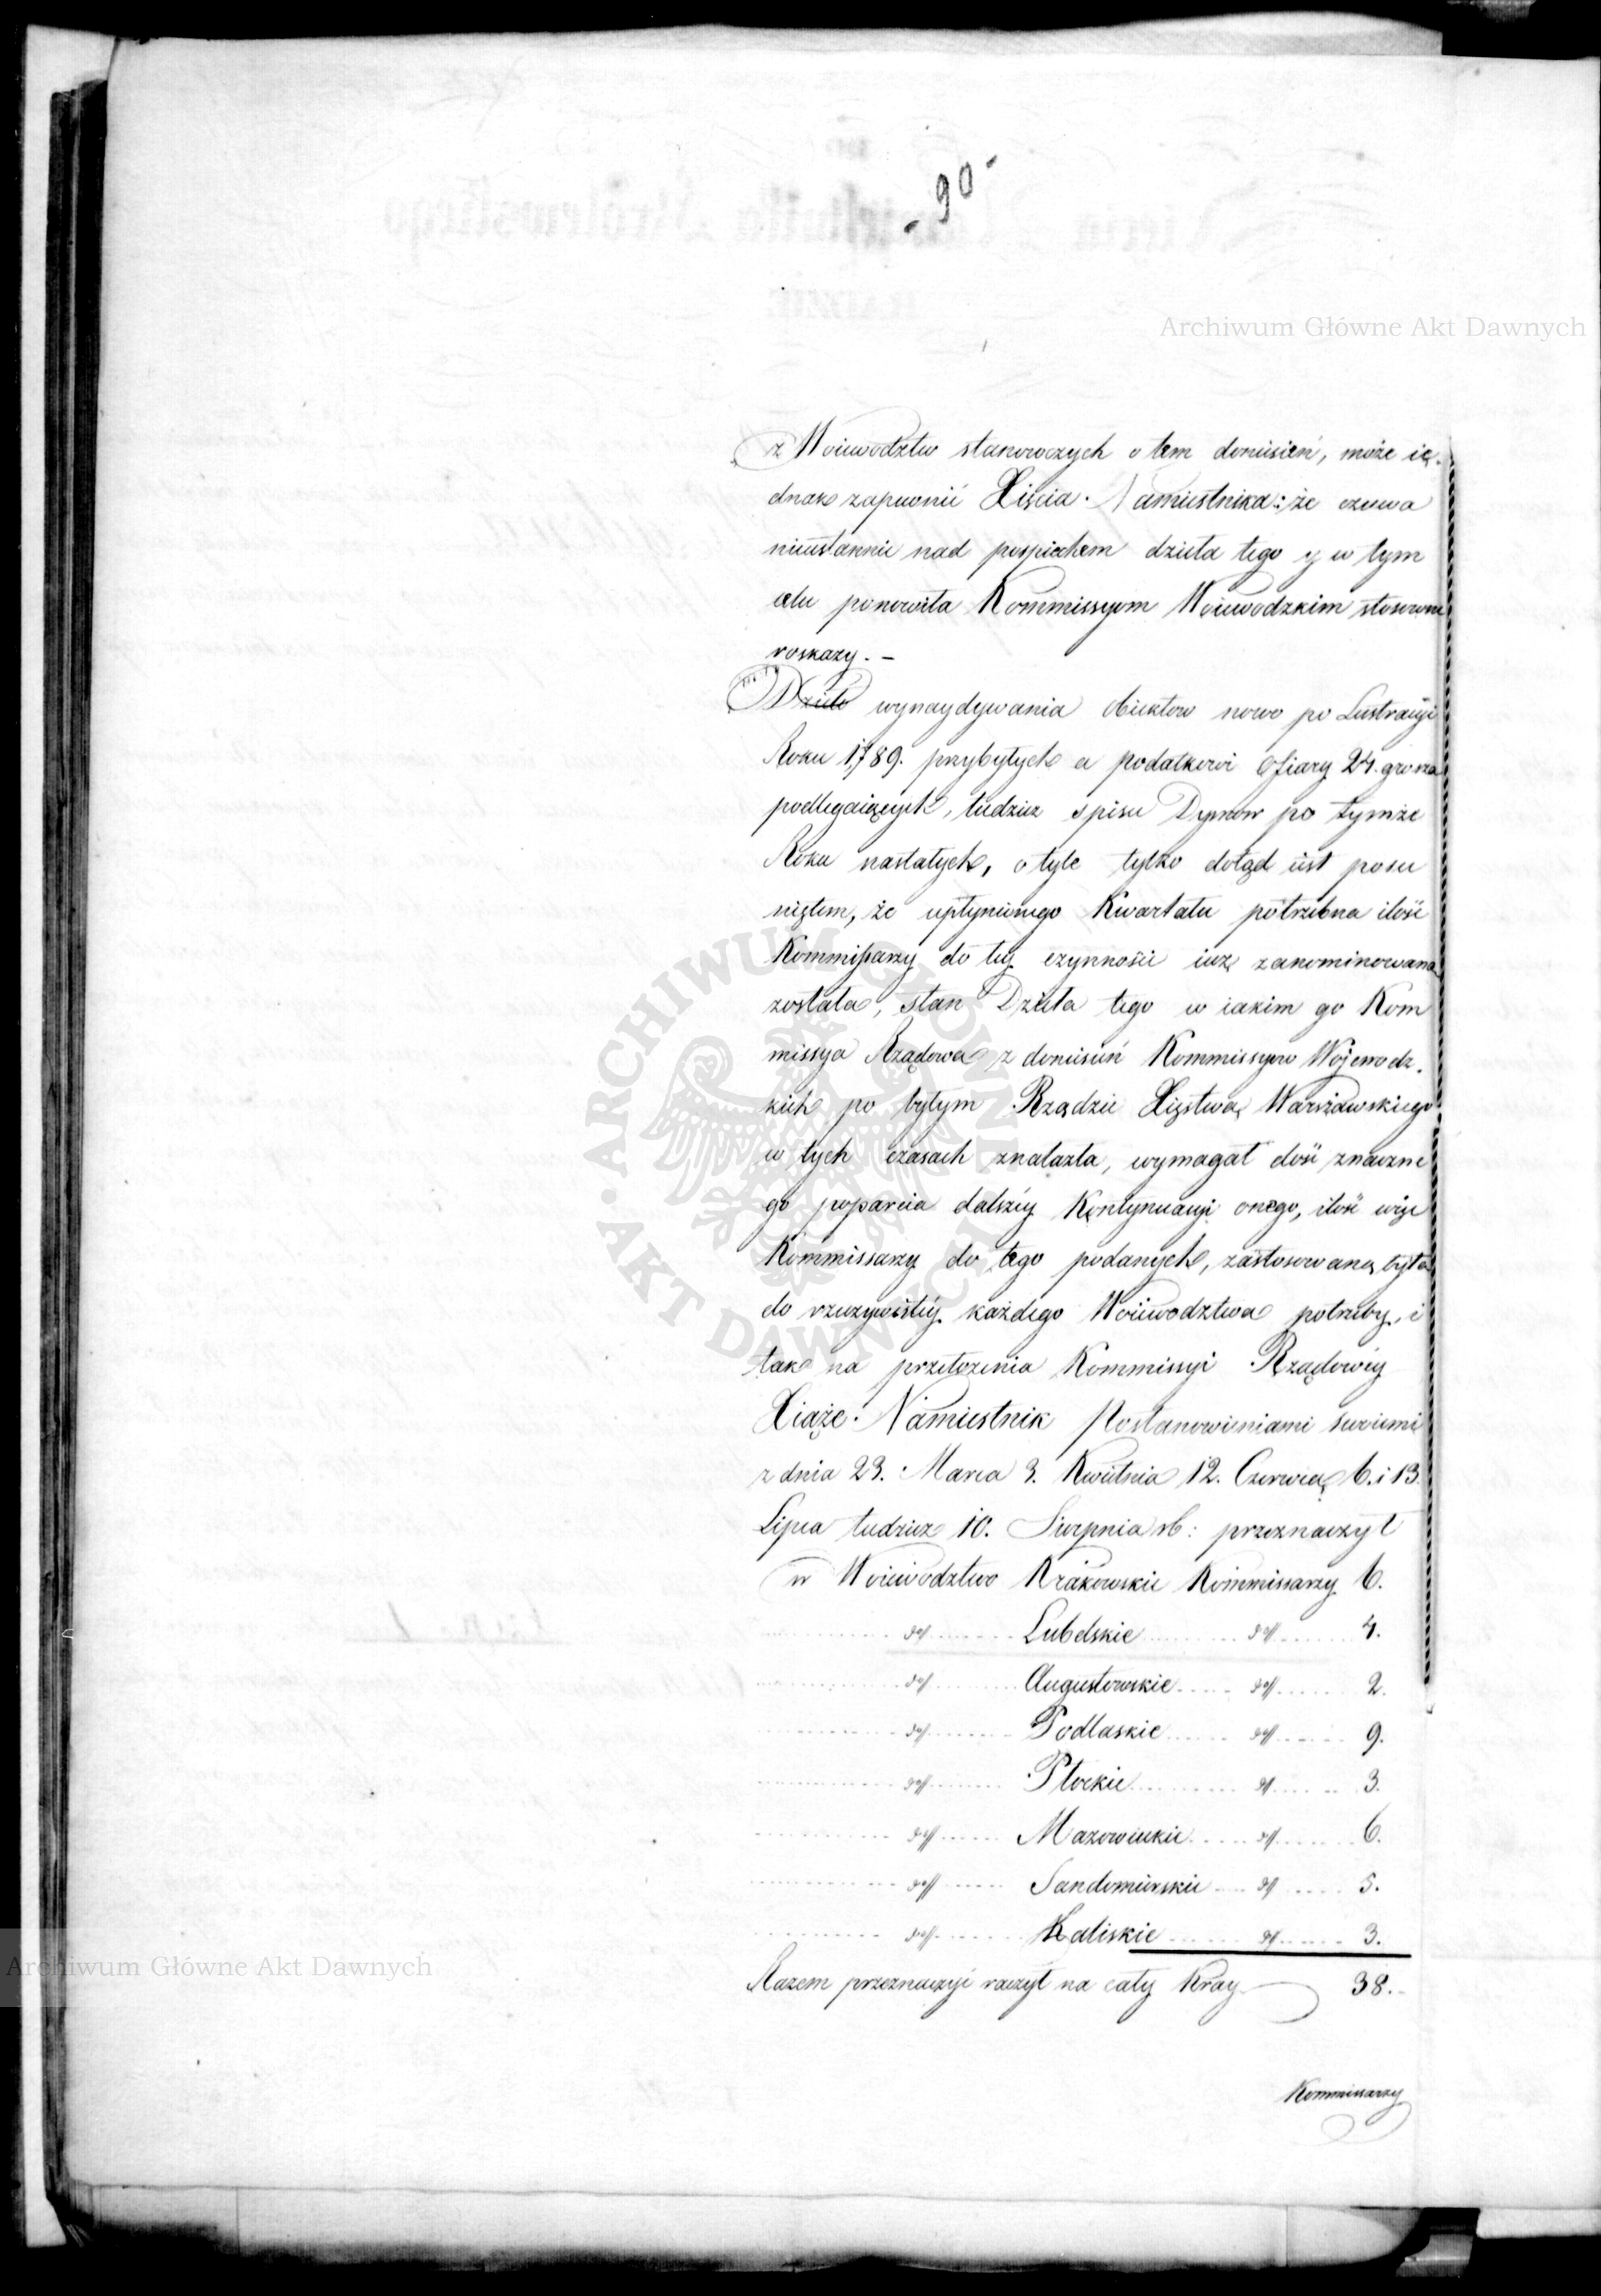 - 90 -
Archiwum Główne Akt Dawnych
z Woiewodztw stanowczych o tem doniesień, może ie-
dnak zapewnić Xięcia Namiestnika: że czuwa
nieustannie nad pospiechem dzieła tego y w tym
celu ponowiła Kommissyom Woiewodzkim stosowne
roskazy. -
Dzieło wynaydywania obiektow nowo po Lustracyi
Roku 1789. przybyłych a podatkowi Ofiary 24. grosza
podlegaiących, tudziez spisu Dymow po tymże
Roku nastałych, o tyle tylko dotąd iest posu
niętem, że upłynionego Kwartału potrzebna ilość
Kommissarzy do tey czynności iuz zanominowana
została, stan Dzieła tego w iakim go Kom
missya Rządowa z doniesień Kommissyow Wojewodz-
kich po byłym Rządzie Xięstwa Warszawskiego
w tych czasach znalazła, wymagał dość znaczne
go poparcia dalszéy Kontynuacyi onego, ilość więc
Kommissarzy do tego podanych, zastosowana była
do rzeczywistéy każdego Woiewodztwa potrzeby, i
tak na przełozenia Kommissyi Rządowéy
Xiąże Namiestnik Postanowieniami swoiemi
z dnia 23. Marca 3. Kwietnia 12. Czerwca 6. i 13.
Lipca tudziez 10. Sierpnia rb: przeznaczył
w Woiewodztwo Krakowskie Kommissarzy 6.
do Lubelskie do 4.
do Augustowskie do 2.
do Podlaskie do 9.
do Płockie do 3.
do Mazowieckie do 6.
do Sandomierskie do 5.
do Kaliskie do 3.
Razem przeznaczyć raczył na cały Kray 38. -
Kommissarzy
ARCHIWUM GŁÓWNE AKT DAWNYCH
Archiwum Główne Akt Dawnych